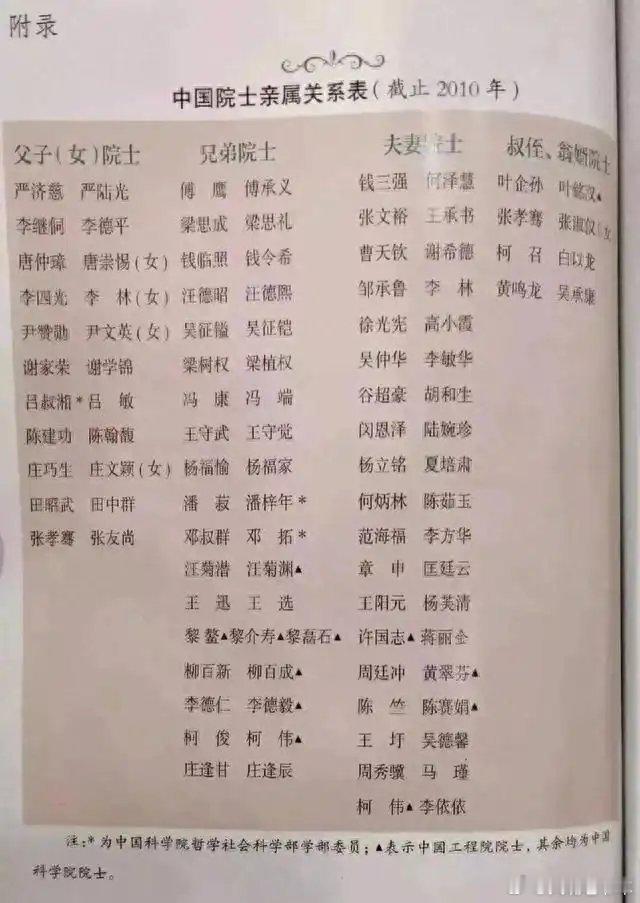 附录
中国院士亲属关系表(截止2010年)
父子(女)院士 兄弟院士 夫妻院士 叔侄、翁婿院士
严济慈 严陆光 傅鹰 傅承义 钱三强 何泽慧 叶企孙 叶懿汉▲
李继侗 李德平 梁思成 梁思礼 张文裕 王承书 张孝骞 张淑仪(女
唐仲璋 唐崇惕(女) 钱临照 钱令希 曹天钦 谢希德 柯召 白以龙
李四光 李林(女) 汪德昭 汪德熙 邹承鲁 李林 黄鸣龙 吴承康
尹赞勋 尹文英(女) 吴征镒 吴征铠 徐光宪 高小霞
谢家荣 谢学锦 梁树权 梁植权 吴仲华 李敏华
吕叔湘* 吕敏 冯康 冯端 谷超豪 胡和生
陈建功 陈翰馥 王守武 王守觉 闵恩泽 陆婉珍
庄巧生 庄文颖(女) 杨福愉 杨福家 杨立铭 夏培肃
田昭武 田中群 潘菽 潘梓年* 何炳林 陈茹玉
张孝骞 张友尚 邓叔群 邓拓* 范海福 李方华
汪菊潜 汪菊渊▲ 章申 匡廷云
王迅 王选 王阳元 杨芙清
黎鳌▲黎介寿▲黎磊石▲ 许国志▲ 蒋丽金
柳百新 柳百成▲ 周廷冲 黄翠芬▲
李德仁 李德毅▲ 陈竺 陈赛娟▲
柯俊 柯伟▲ 王圩 吴德馨
庄逢甘 庄逢辰 周秀骥 马瑾
柯伟▲ 李依依
注:*为中国科学院哲学社会科学部学部委员;▲表示中国工程院院士,其余均为中国
科学院院士。